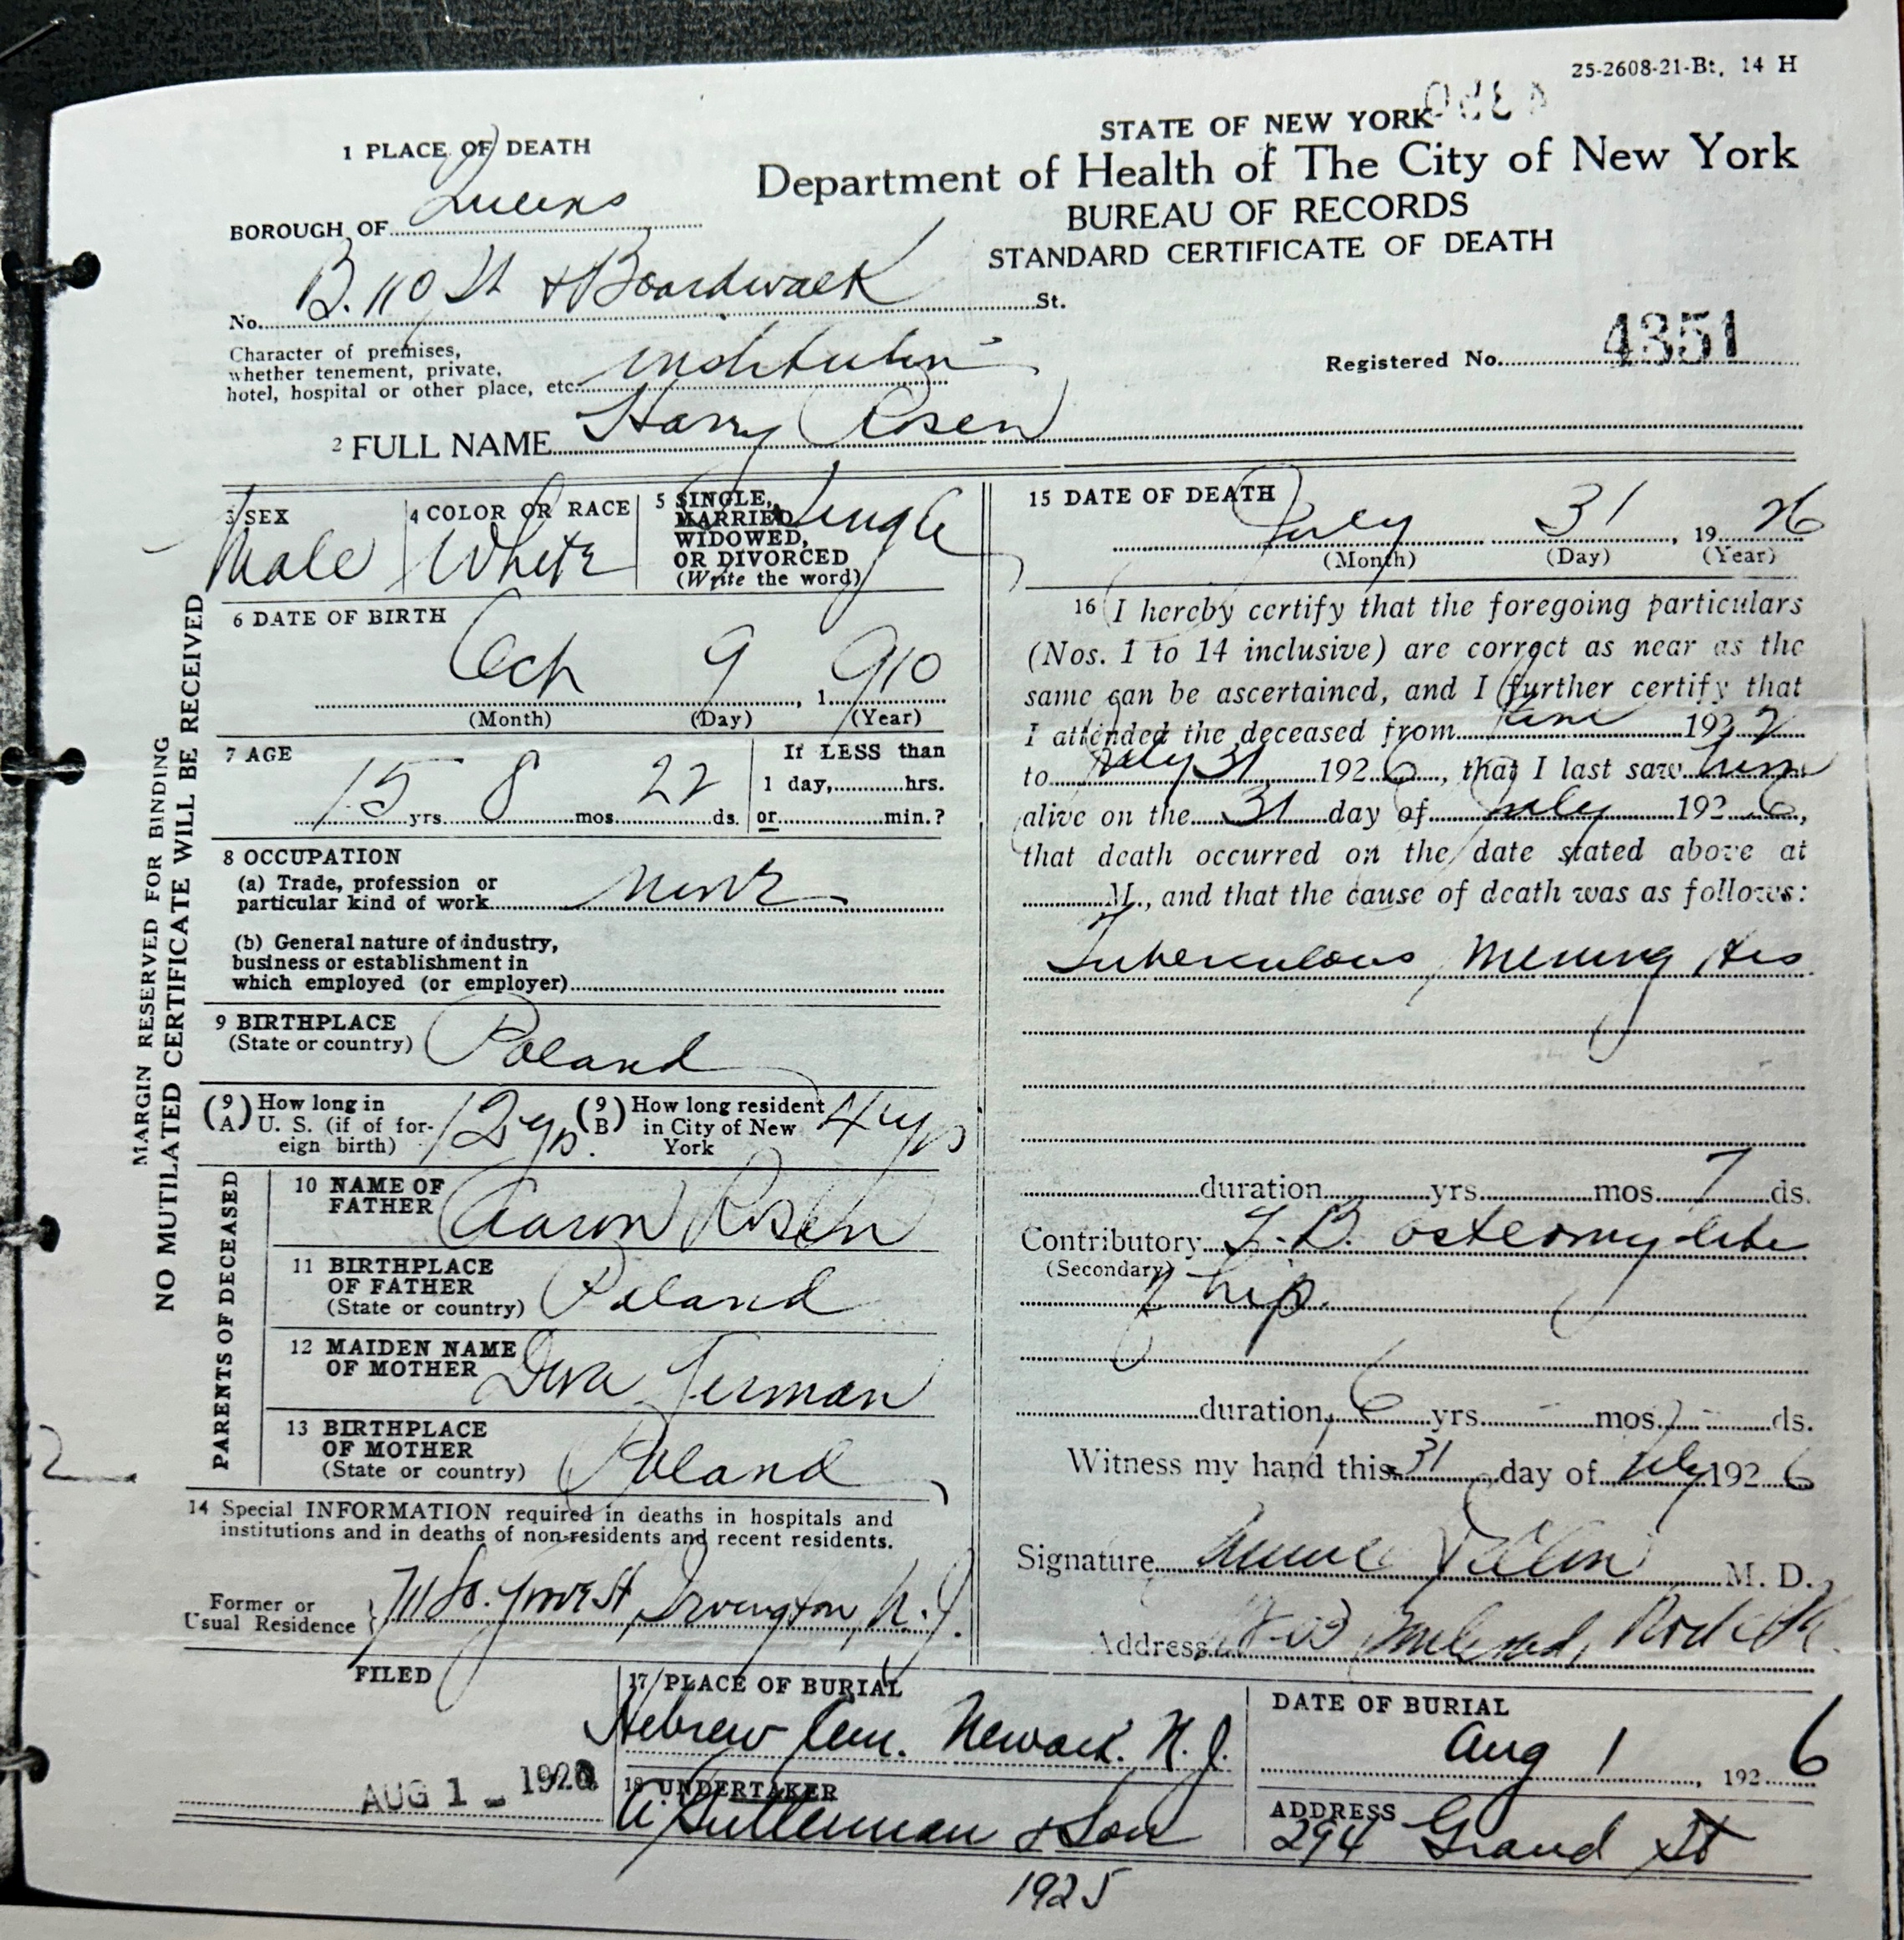 25-2608-21-Bt. 14 H
STATE OF NEW YORK
Department of Health of The City of New York
BUREAU OF RECORDS
STANDARD CERTIFICATE OF DEATH
1 PLACE OF DEATH
BOROUGH OF Queens
No. B. 110 St & Boardwalk St.
Character of premises,
whether tenement, private,
hotel, hospital or other place, etc. institution
Registered No. 4351
2 FULL NAME Harry Rosen
MARGIN RESERVED FOR BINDING
NO MUTILATED CERTIFICATE WILL BE RECEIVED
3 SEX
Male
4 COLOR OR RACE
White
5 SINGLE,
MARRIED,
WIDOWED,
OR DIVORCED
(Write the word)
Single
6 DATE OF BIRTH
Oct 9, 1910
(Month) (Day) (Year)
7 AGE
15 yrs. 8 mos. 22 ds.
If LESS than
1 day, hrs.
or min.?
8 OCCUPATION
(a) Trade, profession or
particular kind of work none
(b) General nature of industry,
business or establishment in
which employed (or employer)
9 BIRTHPLACE
(State or country) Poland
(9 A) How long in
U. S. (if of for-
eign birth) 12 yrs.
(9 B) How long resident
in City of New
York 4 yrs
PARENTS OF DECEASED
10 NAME OF
FATHER Aaron Rosen
11 BIRTHPLACE
OF FATHER
(State or country) Poland
12 MAIDEN NAME
OF MOTHER German
13 BIRTHPLACE
OF MOTHER
(State or country) Poland
14 Special INFORMATION required in deaths in hospitals and
institutions and in deaths of non-residents and recent residents.
Former or
Usual Residence } 711 So. Grove St Irvington, N.J.
15 DATE OF DEATH
July 31, 1926
(Month) (Day) (Year)
16 I hereby certify that the foregoing particulars
(Nos. 1 to 14 inclusive) are correct as near as the
same can be ascertained, and I further certify that
I attended the deceased from June 192 2
to July 31 1926, that I last saw him
alive on the 31 day of July 1926,
that death occurred on the date stated above at
M., and that the cause of death was as follows:
Tuberculous Meningitis
duration yrs. mos. 7 ds.
Contributory T.B. osteomyelitis
(Secondary)
of hip.
duration 6 yrs. - mos. - ds.
Witness my hand this 31 day of July 1926
Signature M. D.
Address
FILED
AUG 1 - 1926
17 PLACE OF BURIAL
Hebrew Cem. Newark. N.J.
DATE OF BURIAL
Aug 1, 1926
18 UNDERTAKER
& Son
ADDRESS
294 Grand St
1925